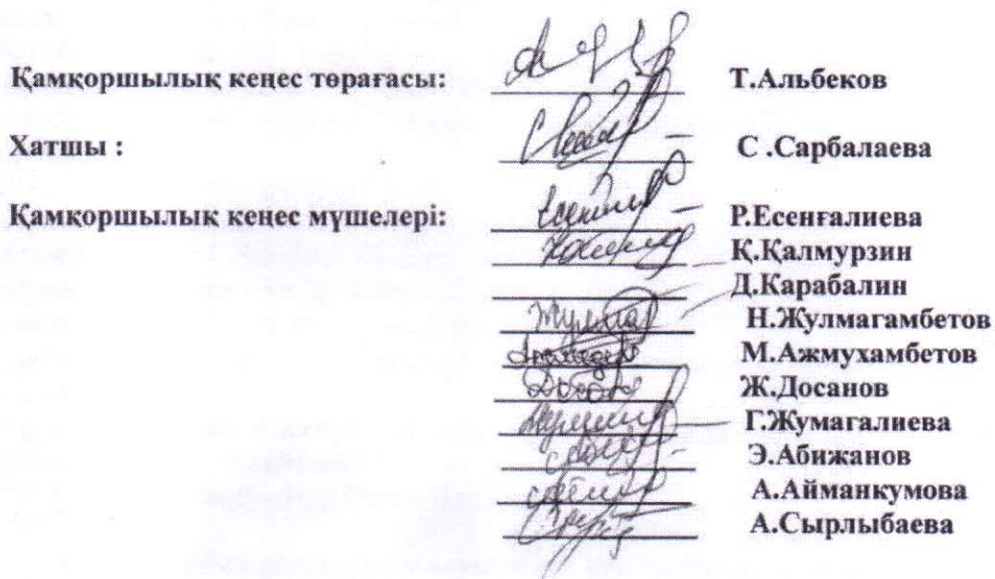 Қамқоршылық кеңес төрағасы: Т.Альбеков
Хатшы : С .Сарбалаева
Қамқоршылық кеңес мүшелері: Р.Есенғалиева
Қ.Қалмурзин
Д.Карабалин
Н.Жулмагамбетов
М.Ажмухамбетов
Ж.Досанов
Г.Жумагалиева
Э.Абижанов
А.Айманкумова
А.Сырлыбаева